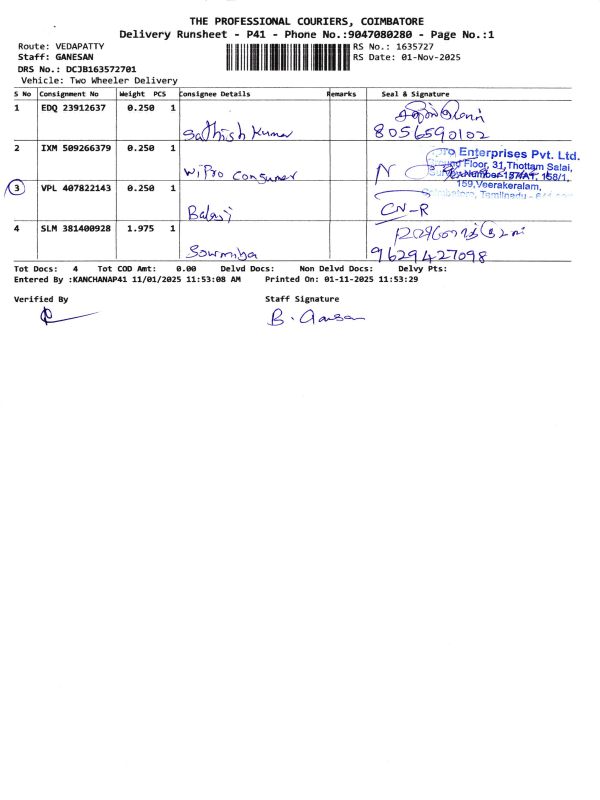 THE PROFESSIONAL COURIERS, COIMBATORE
Delivery Runsheet - P41 - Phone No.:9047080280 - Page No.:1
Route: VEDAPATTY
RS No.: 1635727
Staff: GANESAN
RS Date: 01-Nov-2025
DRS No.: DCJB163572701
Vehicle: Two Wheeler Delivery
S No Consignment No Weight PCS Consignee Details Remarks Seal & Signature
1 EDQ 23912637 0.250 1
Sathish Kumar 8056590102
2 IXM 509266379 0.250 1
Wipro Consumer N
Enterprises Pvt. Ltd.
Floor, 31,Thottam Salai,
159,Veerakeralam,
3 VPL 407822143 0.250 1
Balaji CN-R
4 SLM 381400928 1.975 1
Sowmiya 9629427098
Tot Docs: 4 Tot COD Amt: 0.00 Delvd Docs: Non Delvd Docs: Delvy Pts:
Entered By :KANCHANAP41 11/01/2025 11:53:08 AM Printed On: 01-11-2025 11:53:29
Verified By Staff Signature
B. Ganesan